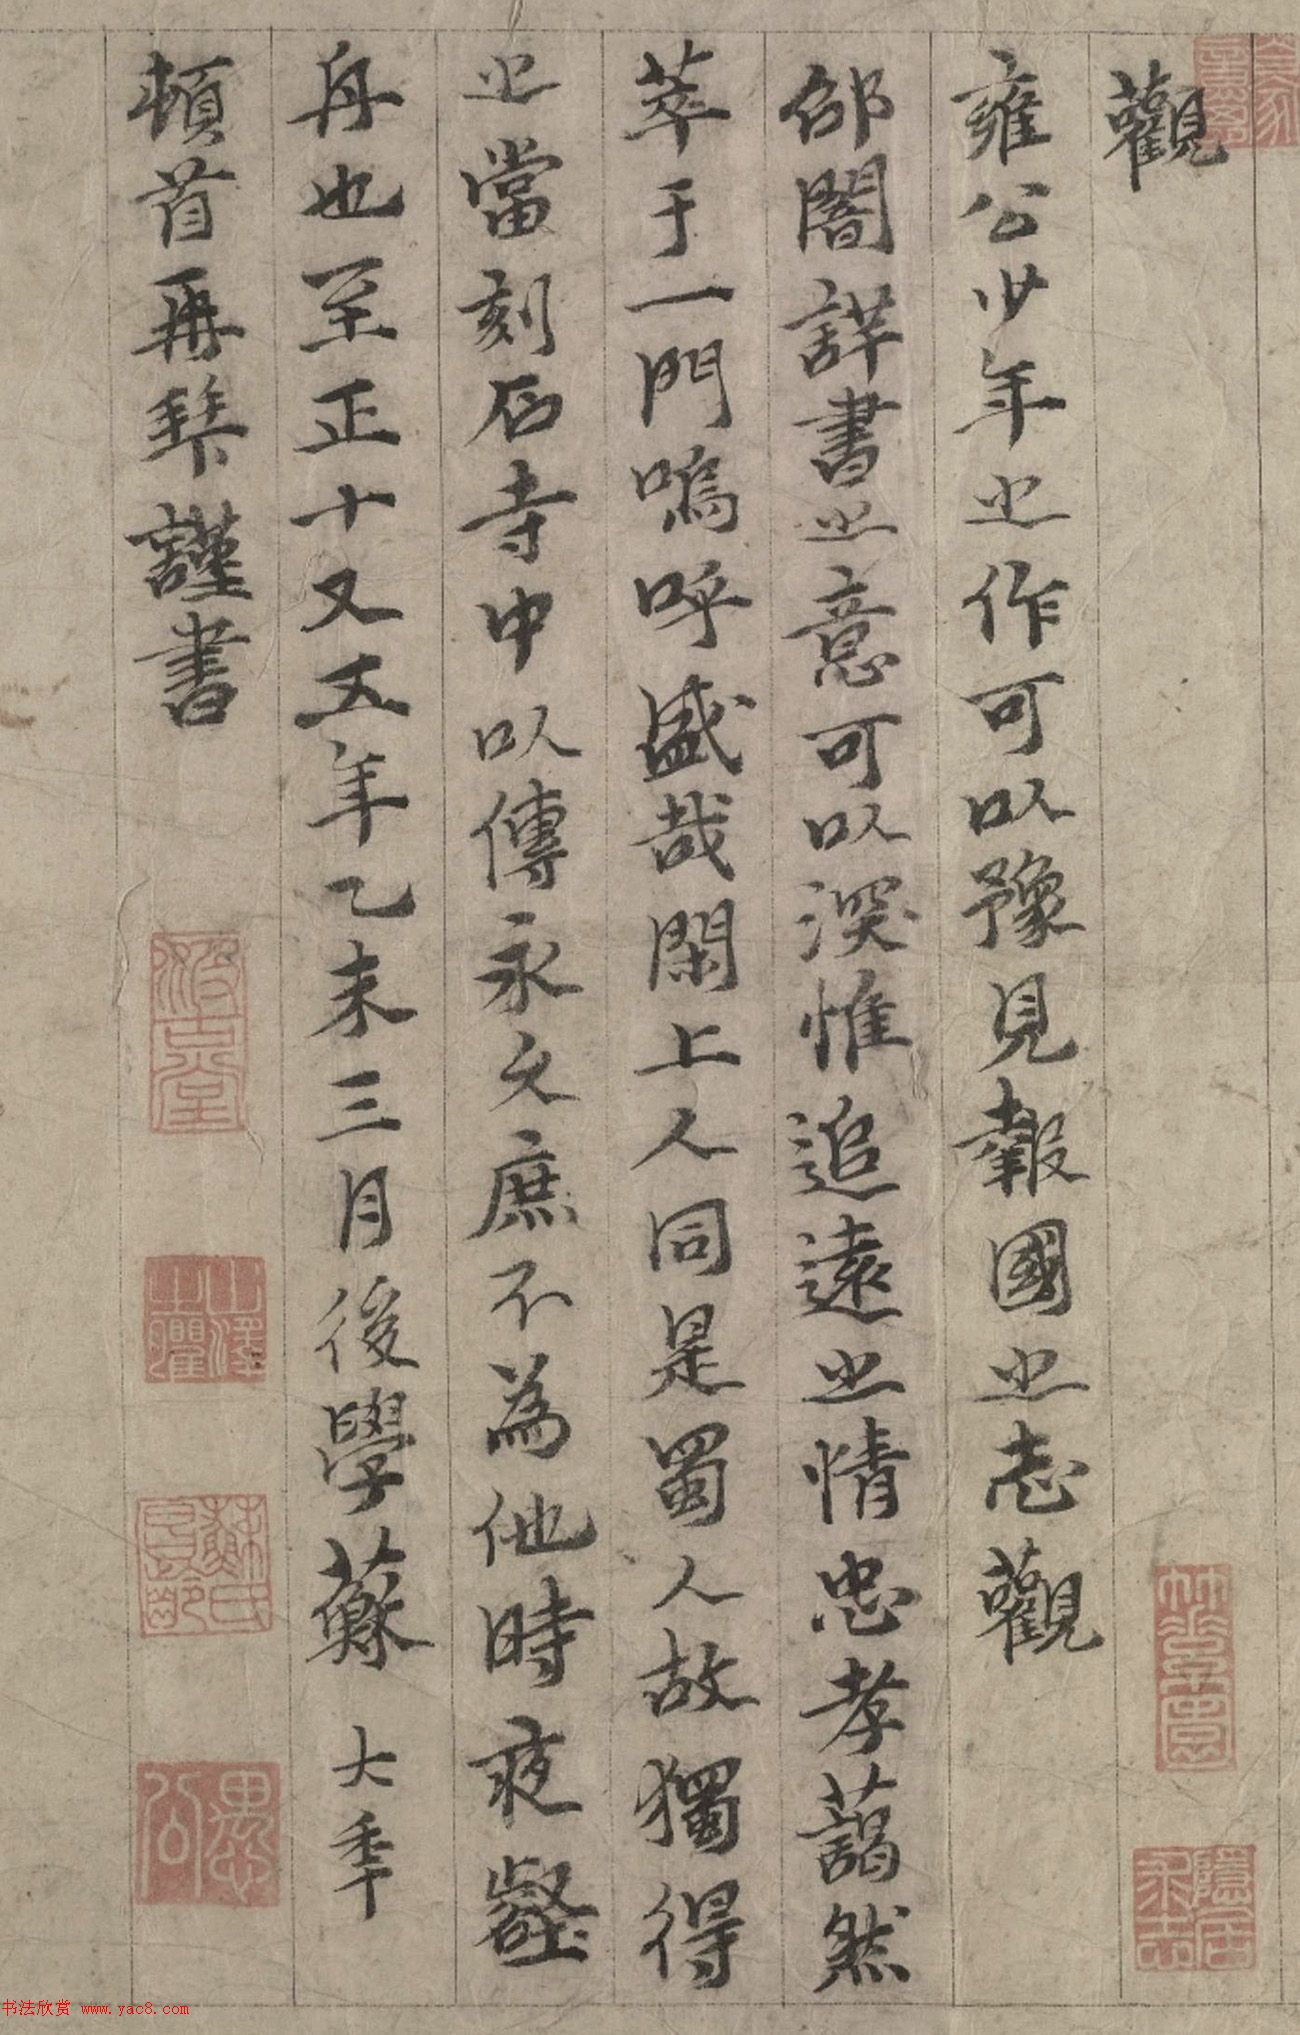 觀
雍公少年之作可以豫見報國之志觀
邵闇詳書之意可以深惟追遠之情忠孝藹然
萃于一門嗚呼盛哉閑上人同是蜀人故獨得
之當刻石寺中以傳永久庶不為他時夜壑
舟也至正十又五年乙未三月後學蘇大年
頓首再拜謹書
山澤臞
蘇氏昌齡
愚公
书法欣赏 www.yac8.com